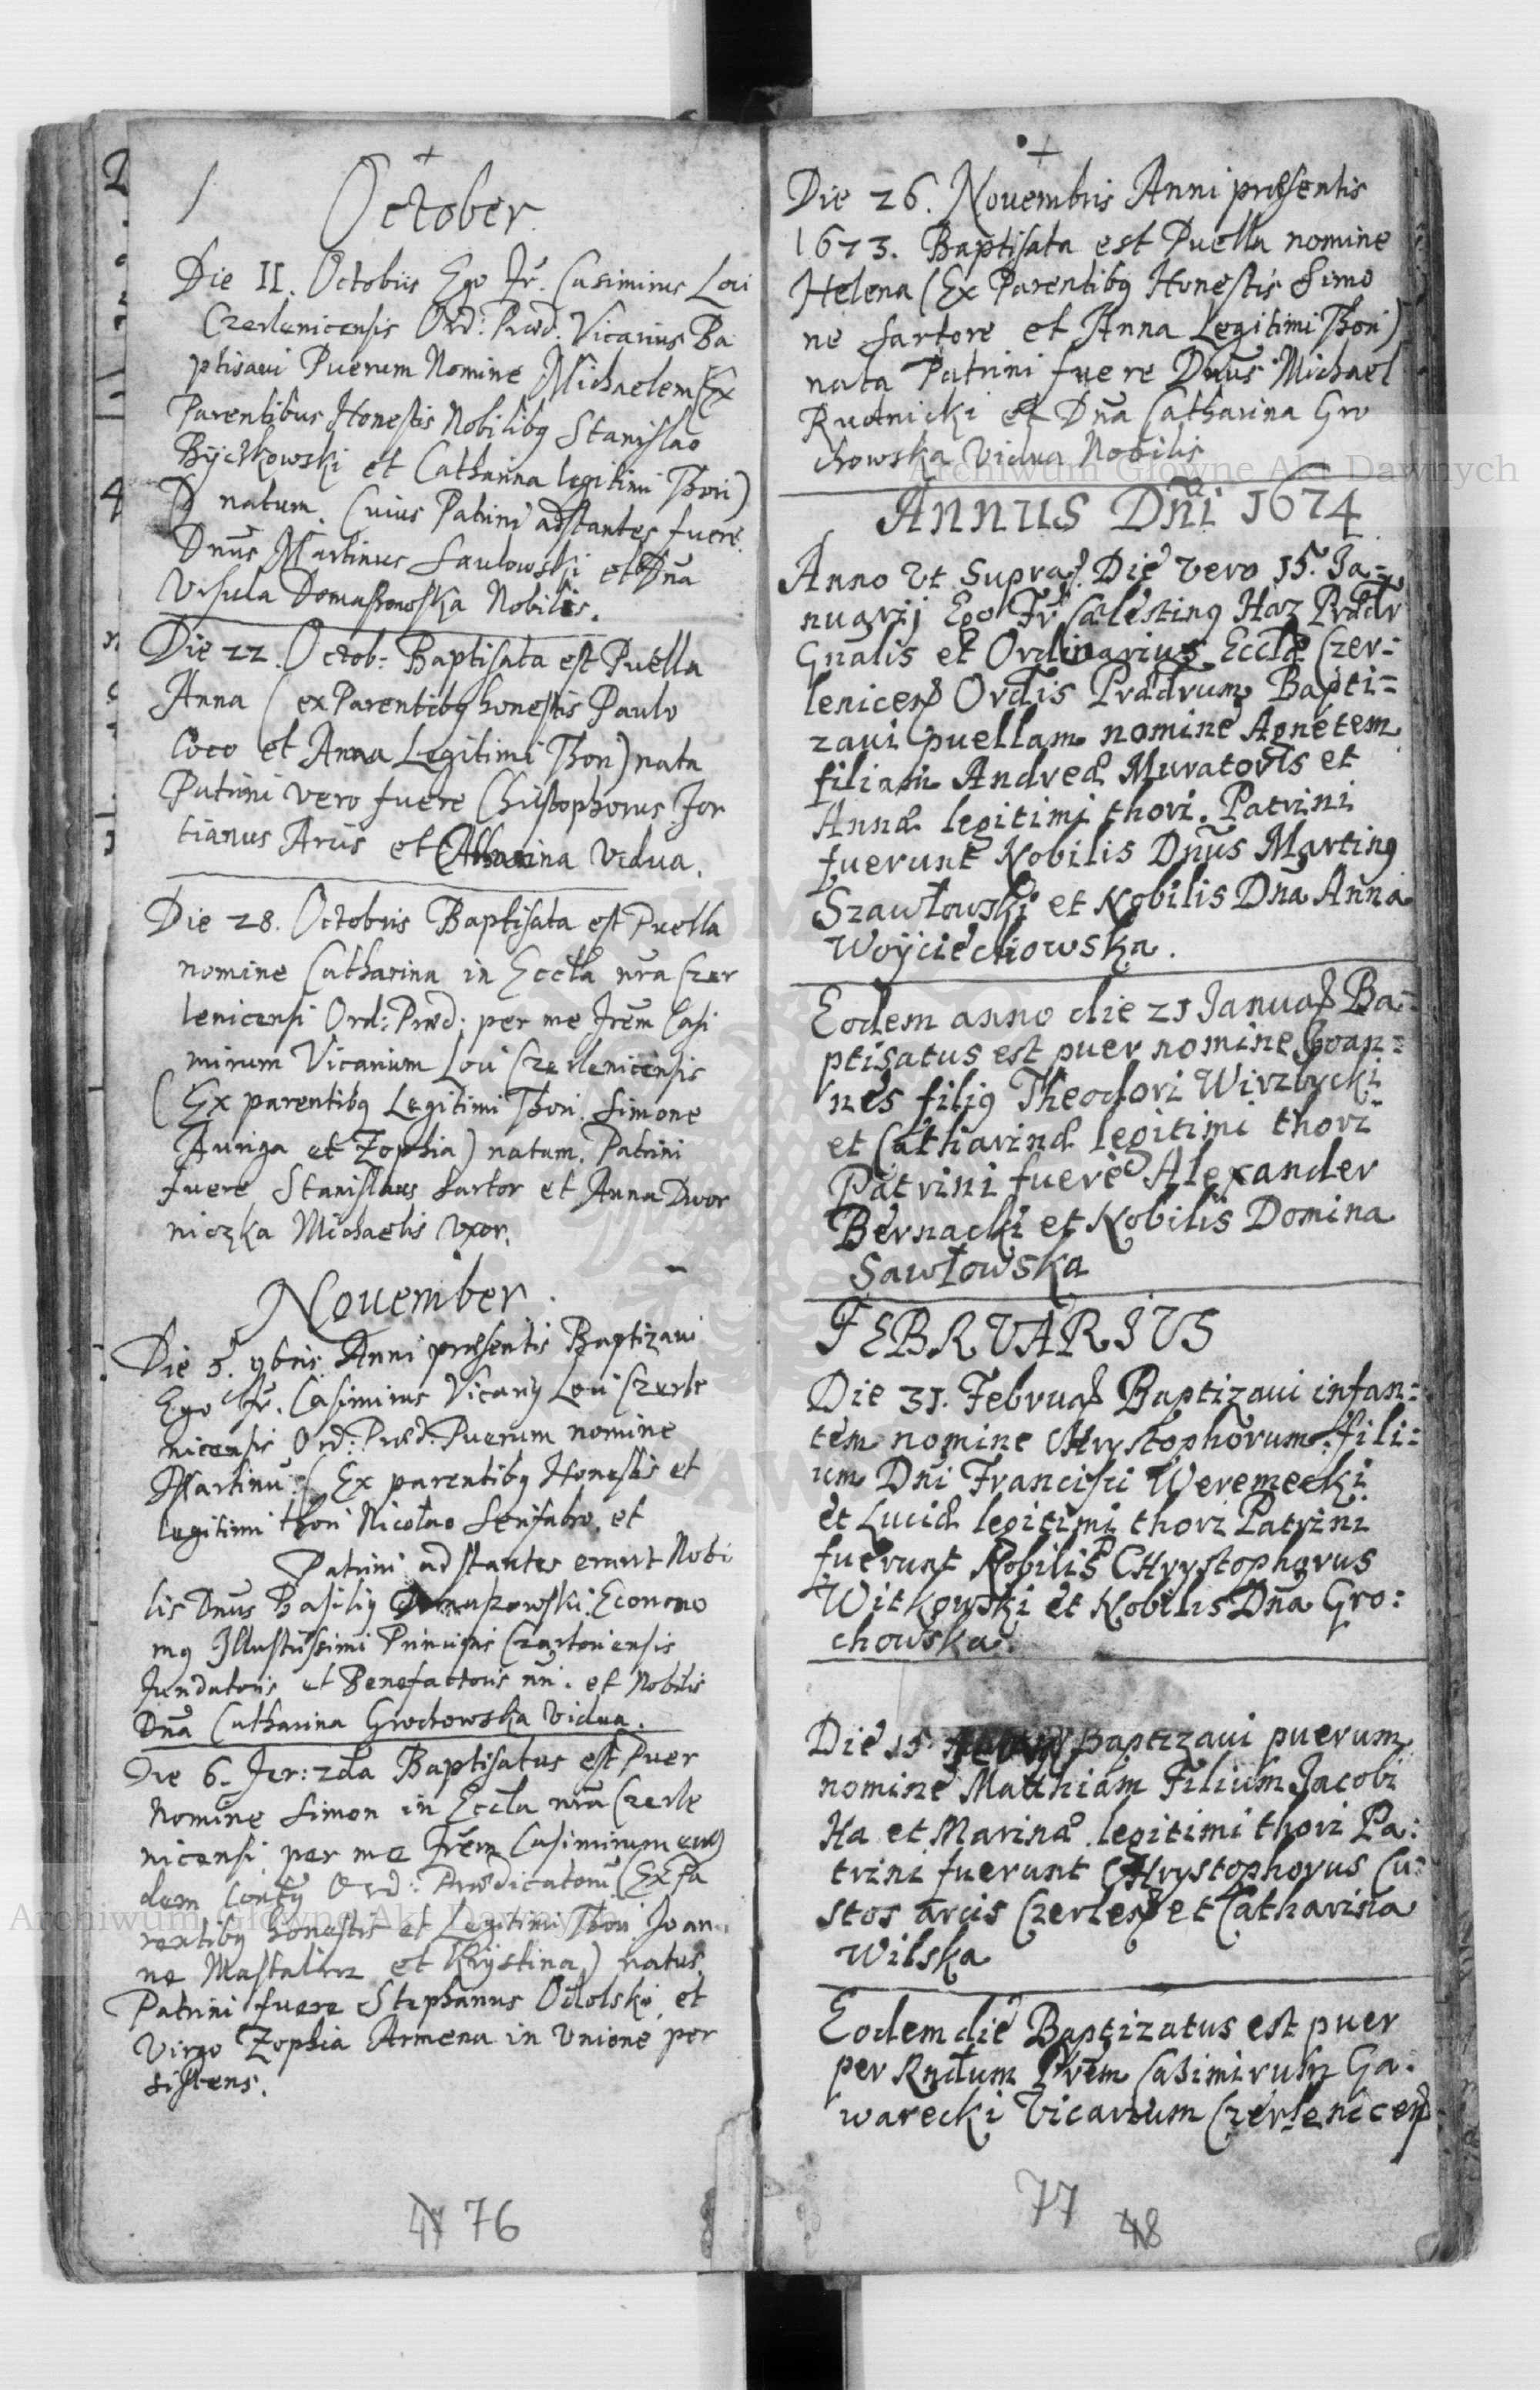 October
Die II. Octobris Ego Fr. Casimirus Loci
Czerlenicensis Ord: Præd: Vicarius Ba
ptisavi Puerum Nomine Michaelem (Ex
Parentibus Honestis Nobilibq Stanislao
Byczkowski et Catharina legitimi Thori)
natum. Cuius Patrini adstantes fuere
Dnus Martinus Saulowski et Dna
Ursula Domaszowska Nobiles.
Die 22. Octob: Baptisata est Puella
Anna (ex Parentibq honestis Paulo
Coco et Anna Legitimi Thori) nata
Patrini vero fuere Christophorus For
tianus Arcis et Catharina Vidua.
Die 28. Octobris Baptisata est Puella
nomine Catharina in Eccla nra Czer
lenicensi Ord: Præd: per me Frem Casi
mirum Vicarium Loci Czerlenicensis
(Ex parentibq Legitimi Thori Simone
Auriga et Zophia) natam. Patrini
fuere Stanislaus Sartor et Anna Dwor
niczka Michaelis Uxor.
November
Die 5. 9bris Anni præsentis Baptizavi
Ego Fr. Casimirus Vicariq Loci Czerle
nicensis Ord: Præd: Puerum nomine
Martinu: (Ex parentibq Honestis et
legitimi thori Nicolao Serifabro et
Patrini adstantes erant Nobi
lis Dnus Basiliq Domaszowski Econono
mq Illustrissimi Principis Czartoriensis
Fundatoris et Benefactoris nri. et Nobilis
Dna Catharina Grochowska Vidua.
Die 6. Fer: 2da Baptisatus est Puer
Nomine Simon in Eccla nra Czerle
nicensi per me Frem Casimirum eius
dem Contq Ord: Prædicatoru (Ex Pa
rentibq honestis et Legitimi Thori Joan
ne Mastalirz et Krystina) natus.
Patrini fuere Stephanus Odolski et
Virgo Zophia Armena in Unione per
sistens.
76
Die 26. Novembris Anni præsentis
1673. Baptisata est Puella nomine
Helena (Ex Parentibq Honestis Simo
ne Sartore et Anna Legitimi Thori)
nata Patrini fuere Dnus Michael
Rudnicki et Dna Catharina Gro
chowska Vidua Nobilis
Archiwum Główne Akt Dawnych
ANNUS Dni 1674
Anno Ut Supra. Die vero 15. Ja-
nuarij Ego Fr Cælestinq Haz Prædr
Gnalis et Ordinarius Ecclæ Czer-
lenicen Ordis Prædrum Bapti-
zavi puellam nomine Agnetem
filiam Andreæ Muratoris et
Annæ legitimi thori. Patrini
fuerunt Nobilis Dnus Martinq
Szawłowski et Nobilis Dna Anna
Woyciechowska.
Eodem anno die 21 Januar Ba-
ptisatus est puer nomine Joan-
nes filiq Theodori Wirzbycki
et Catharinæ legitimi thori
Patrini fuere Alexander
Bernacki et Nobilis Domina
Sawłowska
FEBRVARIVS
Die 31. Februar Baptizavi infan-
tem nomine CHrystophorum fili-
um Dni Francisci Weremecki
et Luciæ legitimi thori Patrini
fuerunt Nobilis CHrystophorus
Witkowski et Nobilis Dna Gro:
chowska.
Die 15 Baptizavi puerum
nomine Matthiam Filium Jacobi
Ha et Marinæ legitimi thori Pa:
trini fuerunt CHrystophorus Cu:
stos arcis Czerlen et Catharina
Wilska
Eodem die Baptizatus est puer
per Rndum Prem Casimirum Ga:
warecki Vicarium Czerlenicen
77 48
Archiwum Główne Akt Dawnych